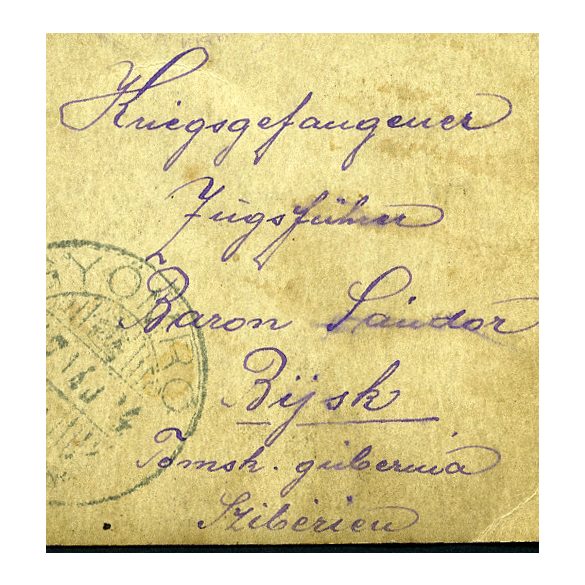 Kriegsgefangener
Zugsführer
Baron Sándor
Bijsk
Tomsk. gubernia
Szibérien